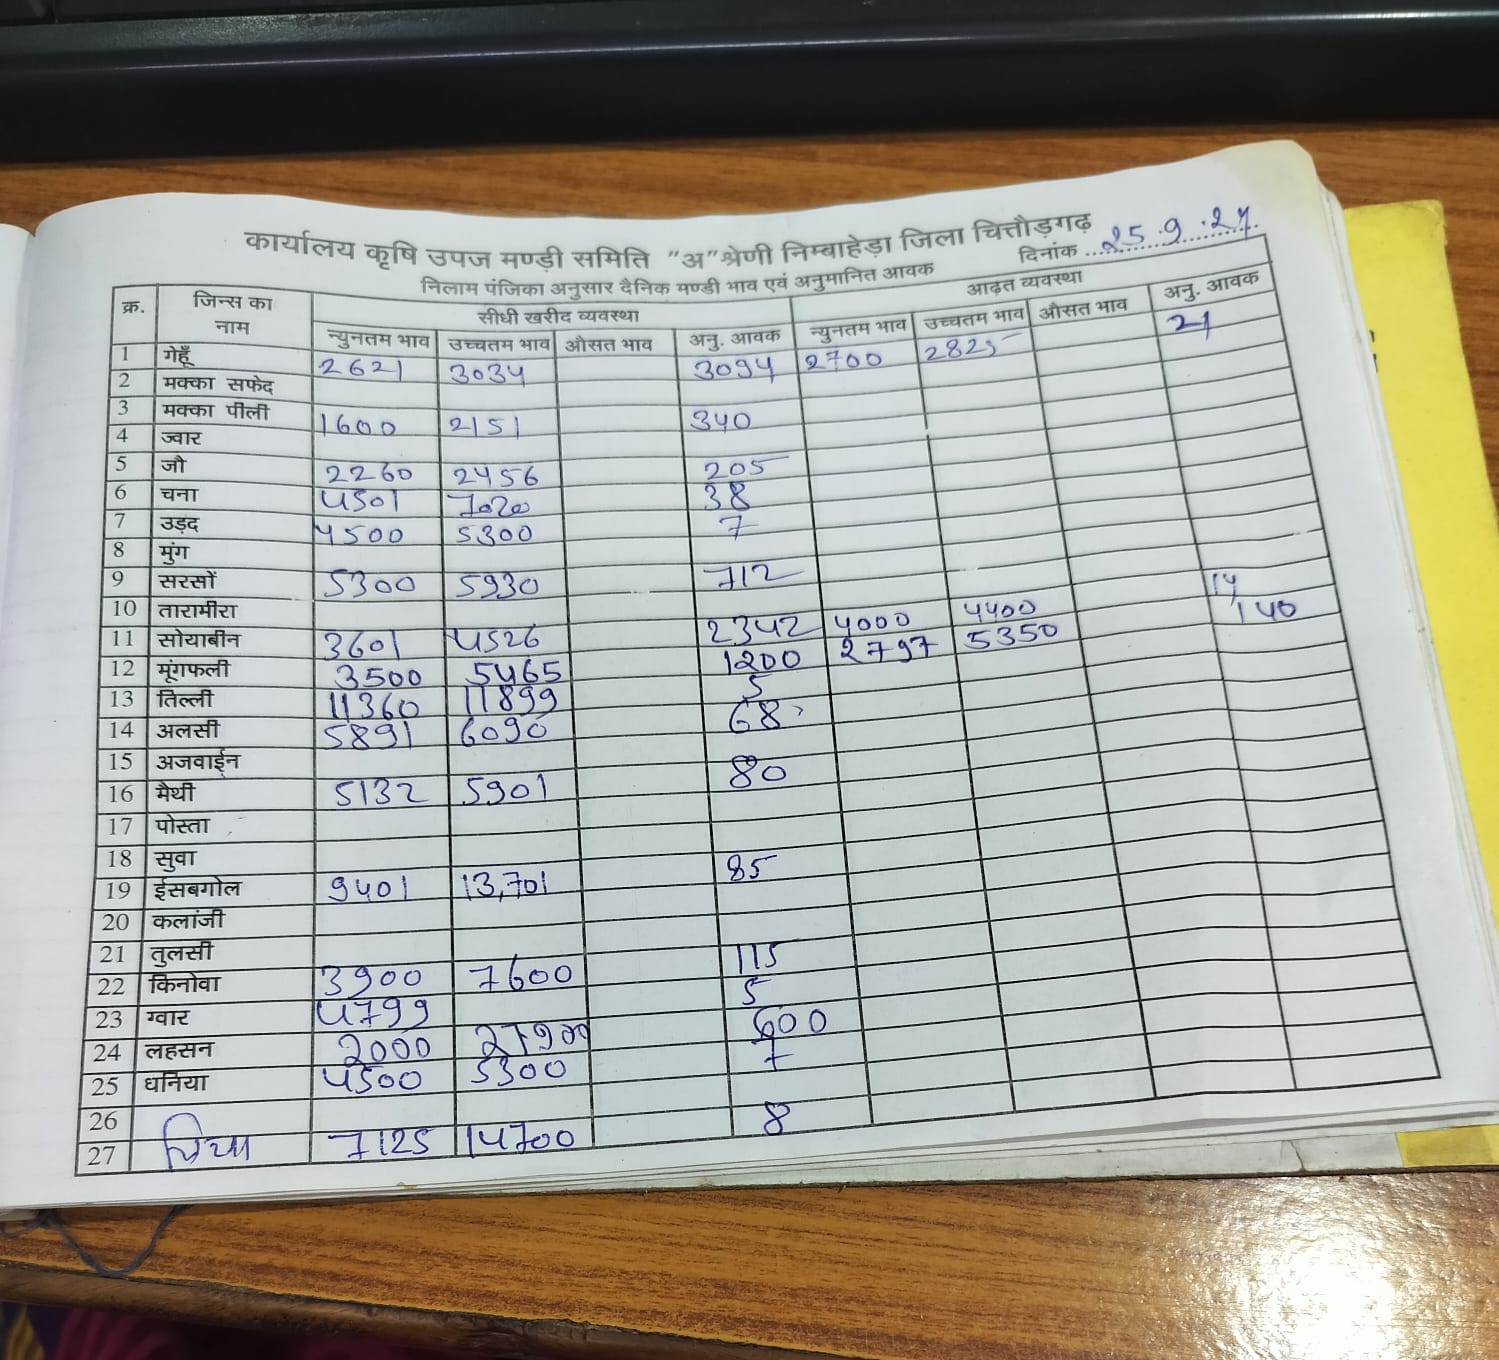 कार्यालय कृषि उपज मण्ड़ी समिति "अ" श्रेणी निम्बाहेड़ा जिला चित्तौड़गढ़
निलाम पंजिका अनुसार दैनिक मण्डी भाव एवं अनुमानित आवक दिनांक 25.9.24
क्र. जिन्स का नाम सीधी खरीद व्यवस्था आढ़त व्यवस्था
न्युनतम भाव उच्चतम भाव औसत भाव अनु. आवक न्युनतम भाव उच्चतम भाव औसत भाव अनु. आवक
1 गेहूँ 2621 3034 3094 2700 2825 21
2 मक्का सफेद
3 मक्का पीली 1600 2151 340
4 ज्वार
5 जौ 2260 2456 205
6 चना 4501 7020 38
7 उड़द 4500 5300 7
8 मुंग
9 सरसों 5300 5930 712
10 तारामीरा
11 सोयाबीन 3601 4526 2342 4000 4400 14
12 मूंगफली 3500 5465 1200 2797 5350 140
13 तिल्ली 11360 11899 5
14 अलसी 5891 6090 68
15 अजवाईन
16 मैथी 5132 5901 80
17 पोस्ता
18 सुवा
19 ईसबगोल 9401 13,701 85
20 कलांजी
21 तुलसी
22 किनोवा 3900 7600 115
23 ग्वार 4799 5
24 लहसन 2000 27900 600
25 धनिया 4500 5300 7
26
27 7125 14700 8